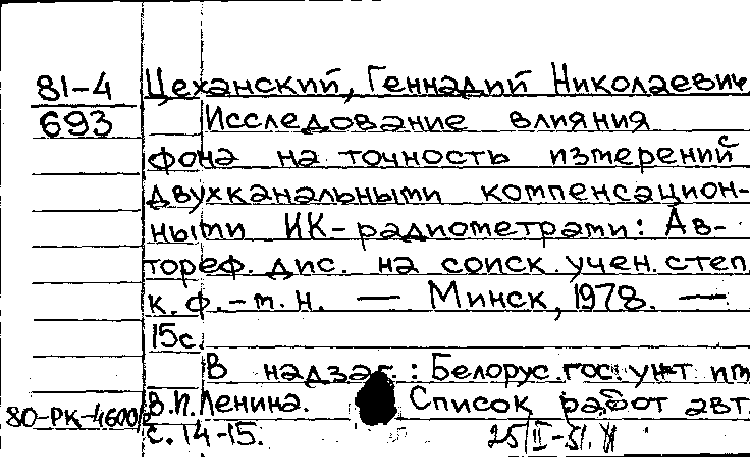 81-4 Цеханский, Геннадий Николаевич
693 Исследование влияния
фона на точность измерений с
двухканальными компенсацион-
ными ИК-радиометрами: Ав-
тореф. дис. на соиск. учен. степ.
к. ф.-м. н. — Минск, 1978. —
15с.
В надзаг.: Белорус. гос. ун-т им.
В.И. Ленина. Список работ авт.
80-РК-4600
с. 14-15.